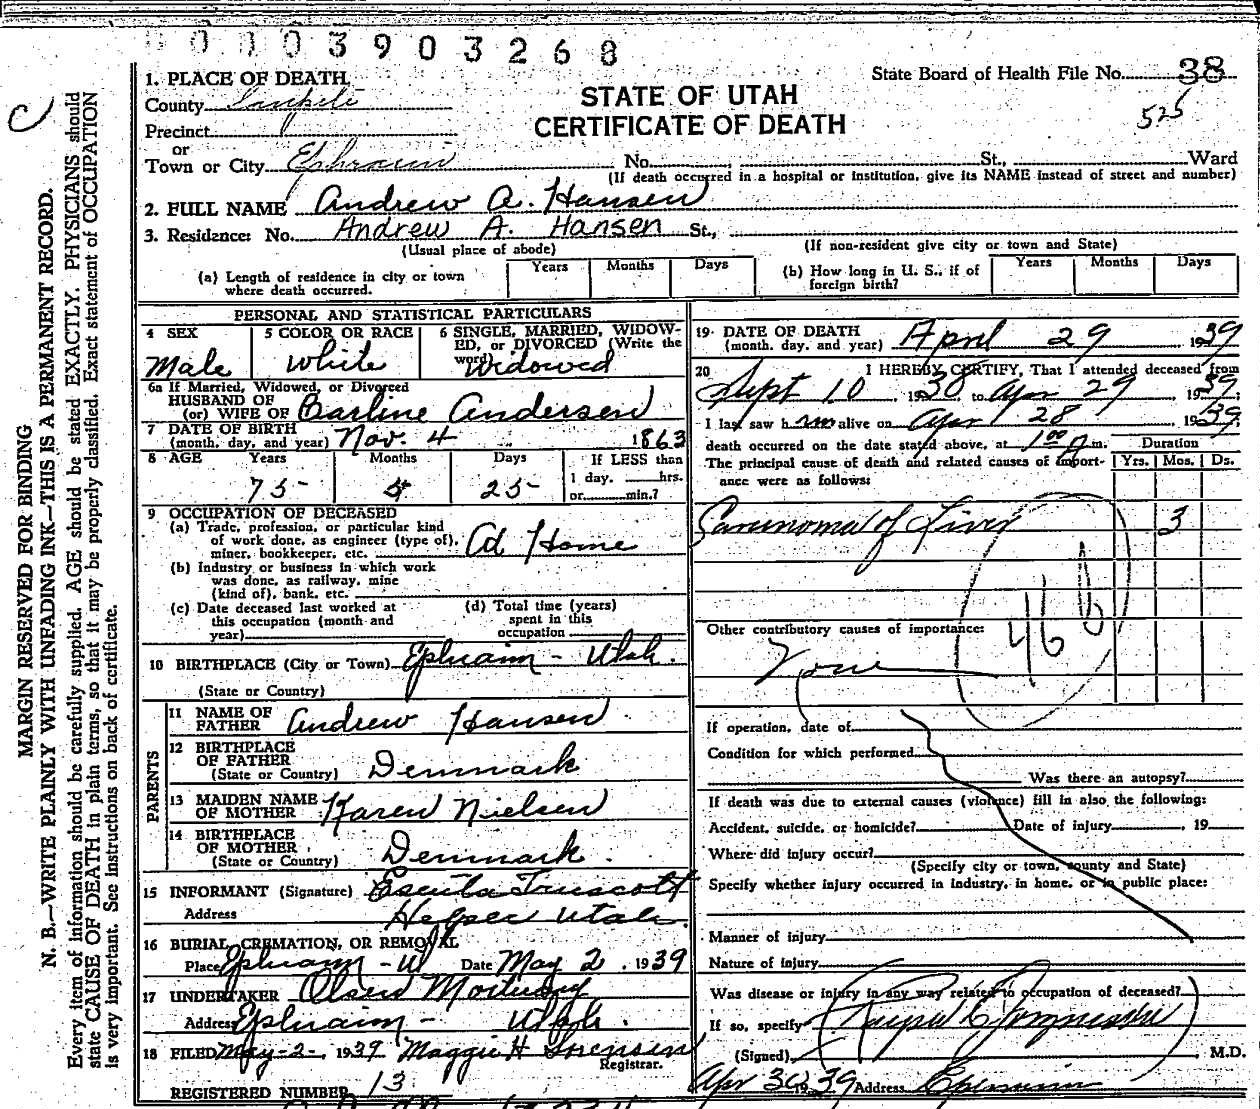 0 0 0 3 9 0 3 2 6 8
State Board of Health File No. 38
525
STATE OF UTAH
CERTIFICATE OF DEATH
1. PLACE OF DEATH
County Sanpete
Precinct
or
Town or City Ephraim No. St., Ward
(If death occurred in a hospital or institution, give its NAME instead of street and number)
2. FULL NAME Andrew A. Hansen
3. Residence: No. Andrew A. Hansen St.,
(Usual place of abode) (If non-resident give city or town and State)
(a) Length of residence in city or town where death occurred. Years Months Days
(b) How long in U. S., if of foreign birth? Years Months Days
PERSONAL AND STATISTICAL PARTICULARS
4 SEX Male
5 COLOR OR RACE White
6 SINGLE, MARRIED, WIDOWED, or DIVORCED (Write the word) Widowed
6a If Married, Widowed, or Divorced
HUSBAND OF
(or) WIFE OF Carline Andersen
7 DATE OF BIRTH
(month, day, and year) Nov. 4 1863
8 AGE Years Months Days If LESS than
1 day, hrs.
or min.?
75 5 25
9 OCCUPATION OF DECEASED
(a) Trade, profession, or particular kind
of work done, as engineer (type of),
miner, bookkeeper, etc. At Home
(b) Industry or business in which work
was done, as railway, mine
(kind of), bank, etc.
(c) Date deceased last worked at
this occupation (month and
year)
(d) Total time (years)
spent in this
occupation
10 BIRTHPLACE (City or Town) Ephraim - Utah.
(State or Country)
PARENTS
11 NAME OF
FATHER Andrew Hansen
12 BIRTHPLACE
OF FATHER
(State or Country) Denmark
13 MAIDEN NAME
OF MOTHER Karen Nielsen
14 BIRTHPLACE
OF MOTHER
(State or Country) Denmark.
15 INFORMANT (Signature) Truscott
Address Helper Utah
16 BURIAL, CREMATION, OR REMOVAL
Place Ephraim - U Date May 2, 1939
17 UNDERTAKER Olsen Mortuary
Address Ephraim - Utah.
18 FILED May-2-, 1939 Maggie H Sorensen
Registrar.
REGISTERED NUMBER 13
19 DATE OF DEATH
(month, day, and year) April 29, 1939
20 I HEREBY CERTIFY, That I attended deceased from
Sept 10, 1938 to Apr 29 1939;
I last saw him alive on Apr 28 1939,
death occurred on the date stated above, at 1:00 a m. Duration
The principal cause of death and related causes of importance were as follows: Yrs. Mos. Ds.
Carcinoma of Liver 3
46
Other contributory causes of importance:
None
If operation, date of
Condition for which performed
Was there an autopsy?
If death was due to external causes (violence) fill in also the following:
Accident, suicide, or homicide? Date of injury , 19
Where did injury occur?
(Specify city or town, county and State)
Specify whether injury occurred in industry, in home, or in public place:
Manner of injury
Nature of injury
Was disease or injury in any way related to occupation of deceased?
If so, specify
(Signed) , M.D.
Apr 30 1939 Address Ephraim
MARGIN RESERVED FOR BINDING
N. B.—WRITE PLAINLY WITH UNFADING INK—THIS IS A PERMANENT RECORD.
Every item of information should be carefully supplied. AGE should be stated EXACTLY. PHYSICIANS should
state CAUSE OF DEATH in plain terms, so that it may be properly classified. Exact statement of OCCUPATION
is very important. See instructions on back of certificate.